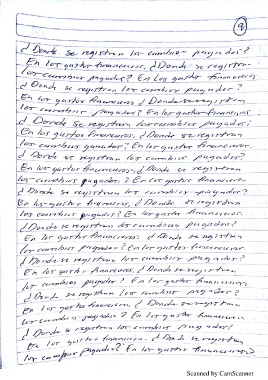 9
¿Donde se registran los cambios pagados?
En los gastos financieros. ¿Donde se registran
los cambios pagados? En los gastos financieros
¿Donde se registran los cambios pagados?
En los gastos financieros ¿Donde se registran
los cambios pagados? En los gastos financieros
¿Donde se registran los cambios pagados?
En los gastos financieros. ¿Donde se registran
los cambios ganados? En los gastos financieros.
¿Donde se registran los cambios pagados?
En los gastos financieros. ¿Donde se registran
los cambios pagados? En los gastos financieros.
¿Donde se registran los cambios pagados?
En los gastos financieros. ¿Donde se registran
los cambios pagados? En los gastos financieros.
¿Donde se registran los cambios pagados?
En los gastos financieros. ¿Donde se registran
los cambios pagados? En los gastos financieros
¿Donde se registran los cambios pagados?
En los gastos financieros. ¿Donde se registran
los cambios pagados? En los gastos financieros
¿Donde se registran los cambios pagados?
En los gastos financieros. ¿Donde se registran
los cambios pagados? En los gastos financieros.
¿Donde se registran los cambios pagados?
En los gastos financieros. ¿Donde se registran
los cambios pagados? En los gastos financieros?
Scanned by CamScanner